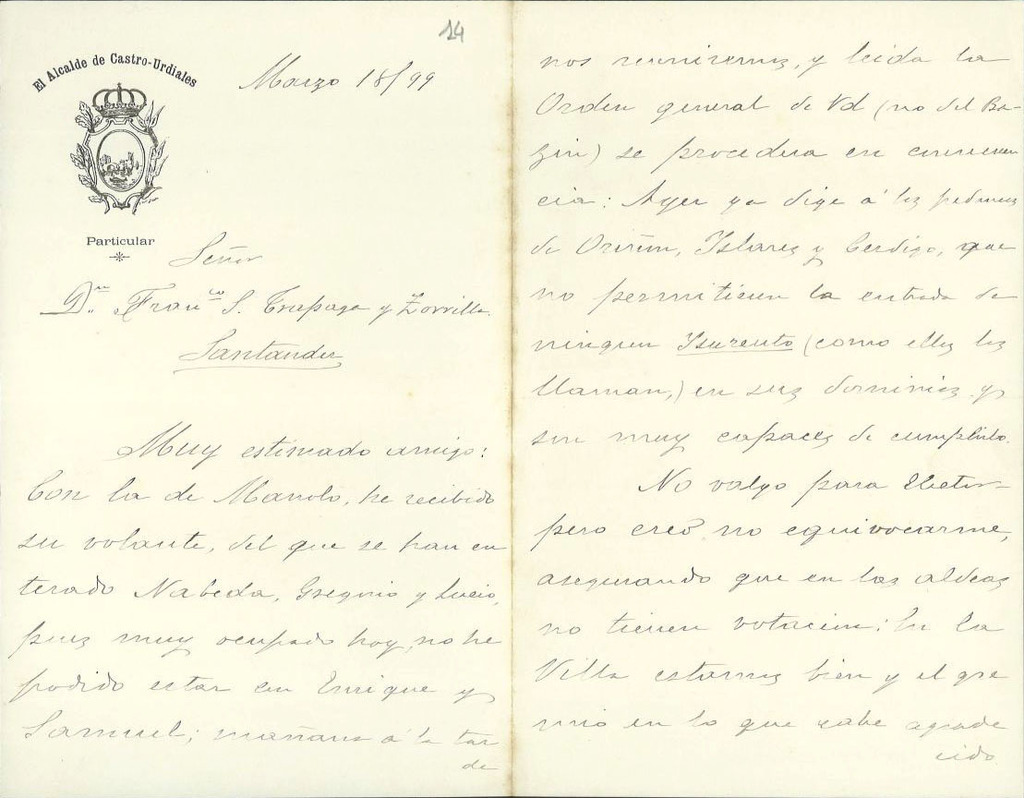 14
El Alcalde de Castro-Urdiales
Marzo 18/99
Particular
Señor
Dn. Franco S. Trapaga y Zorrilla
Santander
Muy estimado amigo:
Con la de Manolo, he recibido
su volante, del que se han en
terado Nabeda, Gregorio y Lucio,
pues muy ocupado hoy, no he
podido estar con Enrique y
Samuel; mañana á la tar
de
nos reuniremos, y leida la
Orden general de Vd (no del Ba-
zin) se procedera en consecuen
cia: Ayer ya dige á los pedaneos
de Oriñon, Yslares y Cerdigo, que
no permitiesen la entrada de
ningun (como ellos los
llaman,) en sus dominios y
son muy capaces de cumplirlo.
No valgo para
pero creo no equivocarme,
asegurando que en las aldeas
no tienen votacion: En la
Villa estamos bien y el gre
mio en lo que cabe agrade
cido.